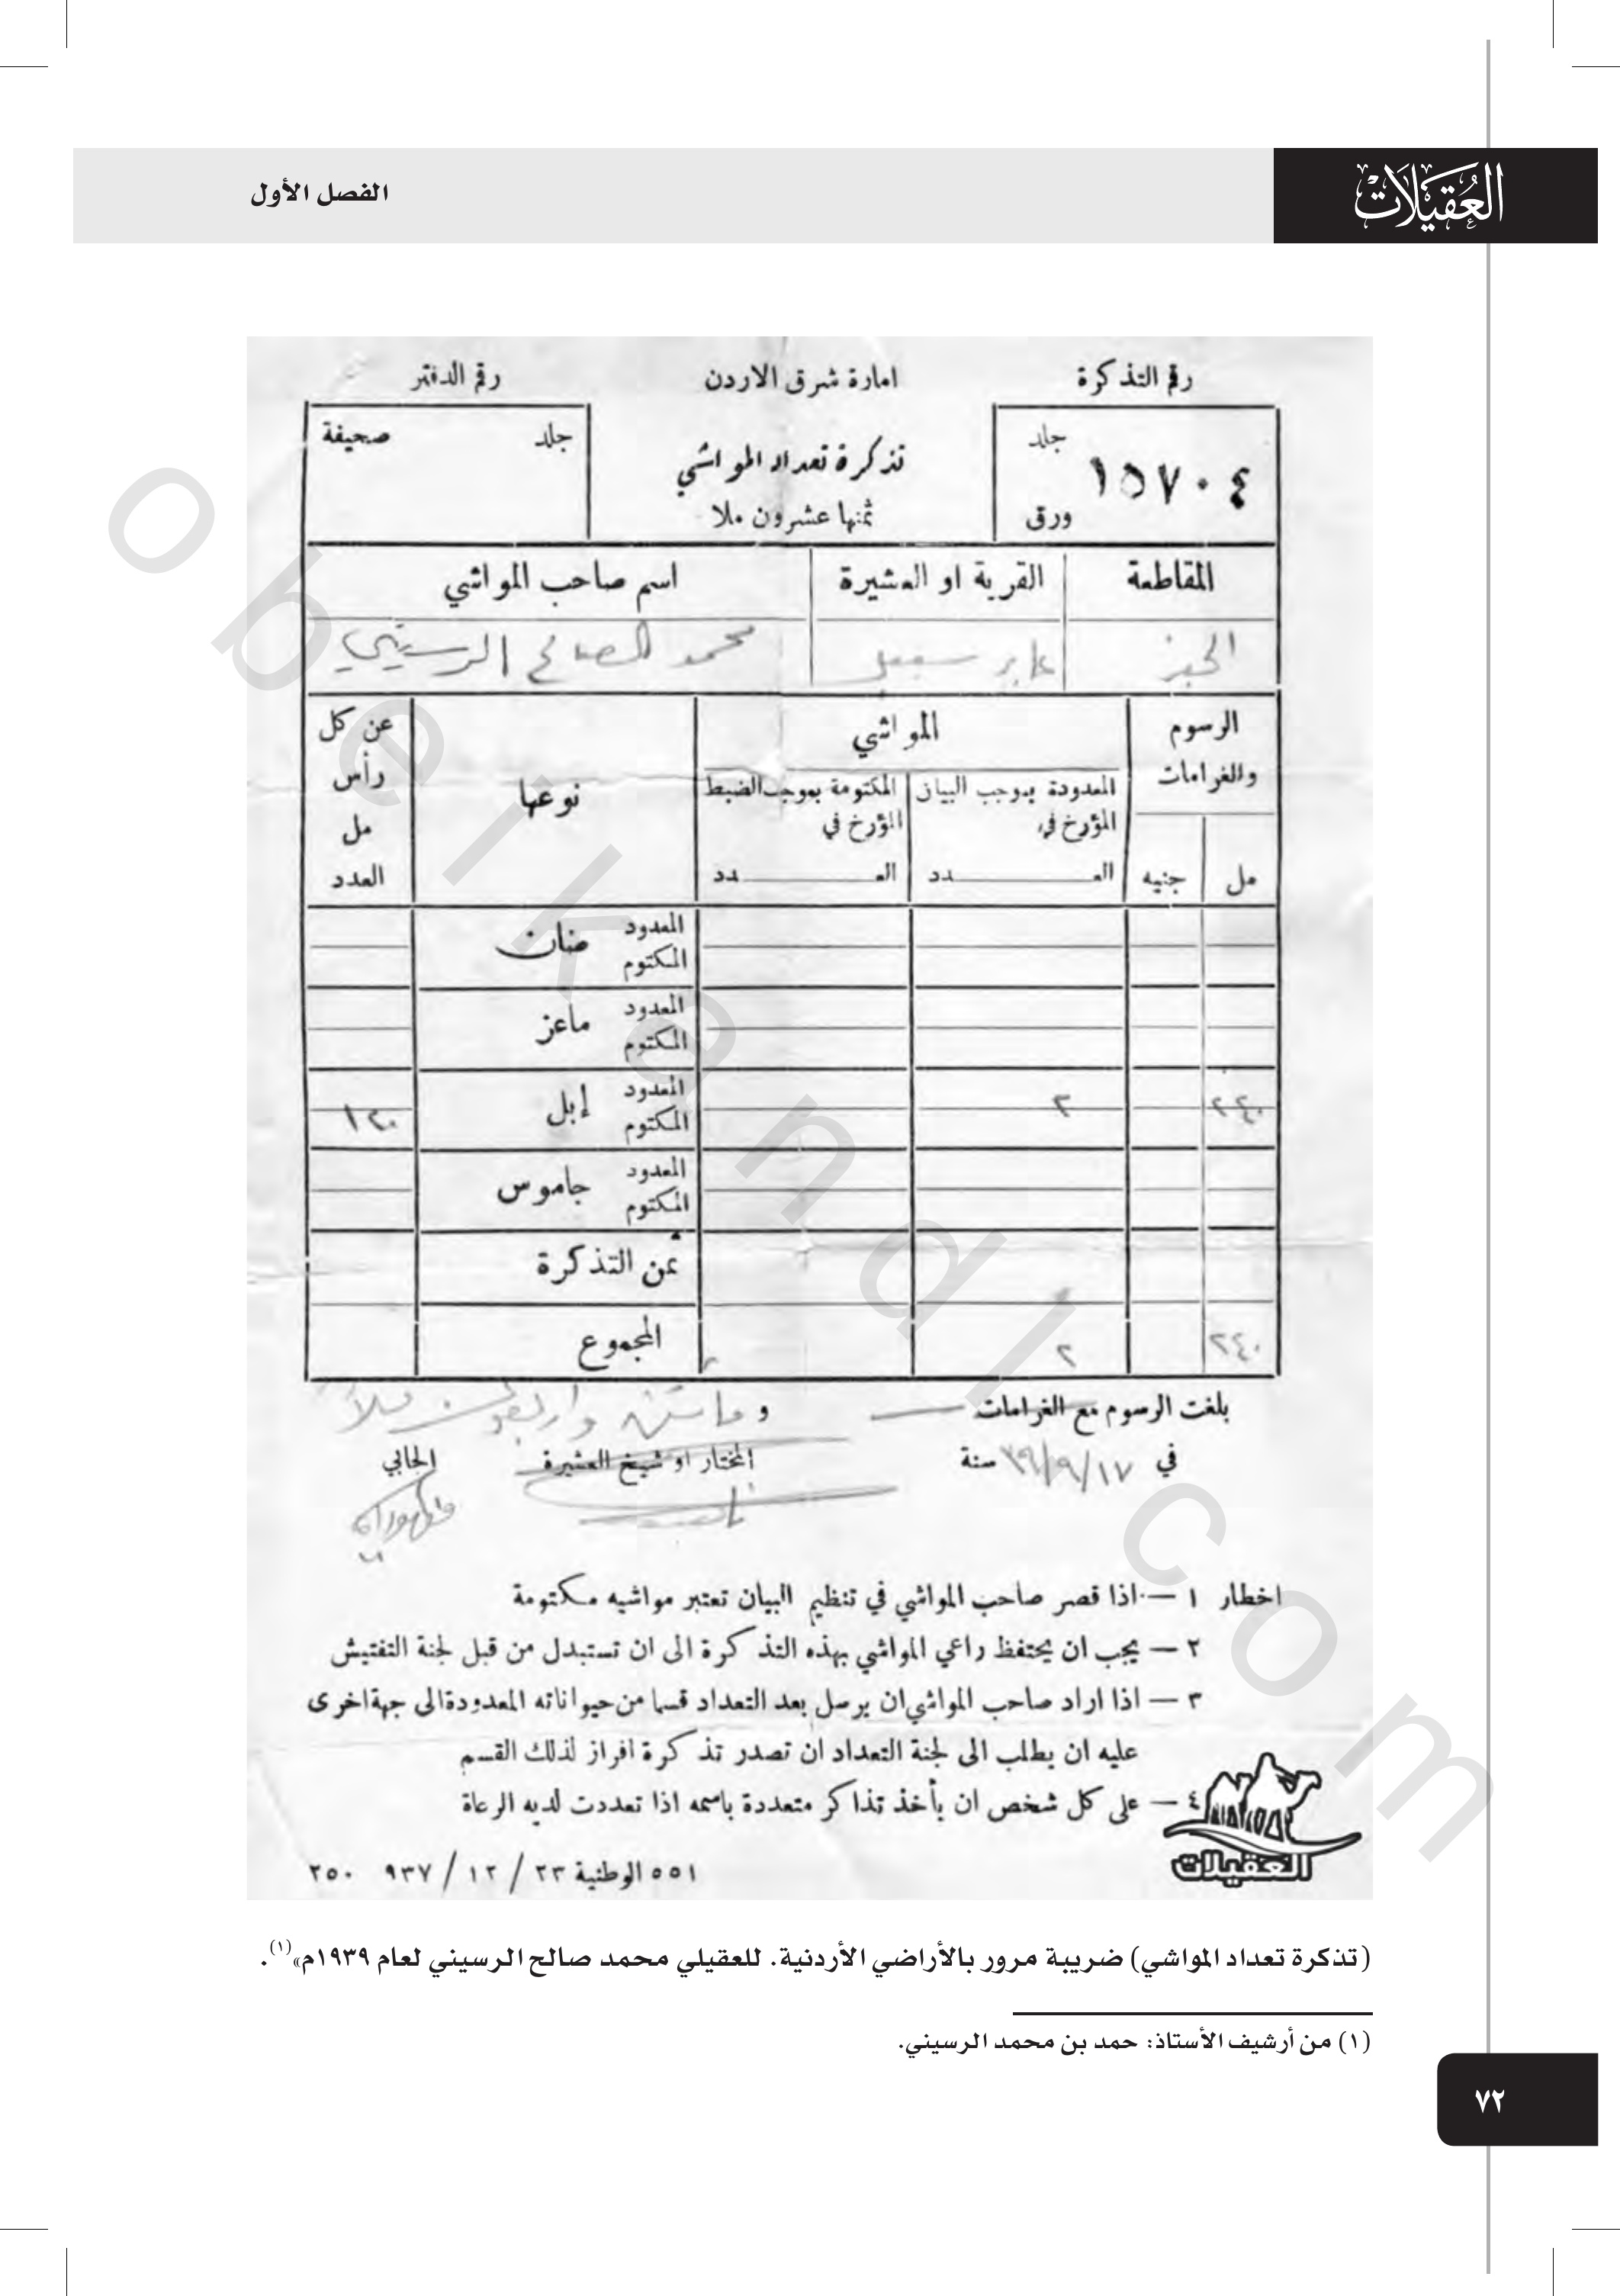 العُقَيْلَاتْ
الفصل الأول
رقم التذكرة
امارة شرق الاردن
رقم الدفتر
جلد
١٥٧٠٤
ورق
تذكرة تعداد المواشي
ثمنها عشرون ملا
جلد
صحيفة
المقاطعة
القرية او العشيرة
اسم صاحب المواشي
عابر سبيل
محمد الصالح الرسيني
الرسوم
والغرامات
المواشي
نوعها
عن كل
رأس
مل
العدد
المعدودة بموجب البيان
المؤرخ في
المكتومة بموجب الضبط
المؤرخ في
مل
جنيه
العـــدد
العـــدد
المعدود
المكتوم
ضان
المعدود
المكتوم
ماعز
٢٤٠
٢
المعدود
المكتوم
إبل
١٢٠
المعدود
المكتوم
جاموس
ثمن التذكرة
٢٤٠
٢
المجموع
بلغت الرسوم مع الغرامات — و مائتين واربعون ملاً
في ١٧/٩/٣٩ سنة
المختار او شيخ العشيرة
الجابي
اخطار ١ — اذا قصر صاحب المواشي في تنظيم البيان تعتبر مواشيه مكتومة
٢ — يجب ان يحتفظ راعي المواشي بهذه التذكرة الى ان تستبدل من قبل لجنة التفتيش
٣ — اذا اراد صاحب المواشي ان يرسل بعد التعداد قسما من حيواناته المعدودة الى جهة اخرى
عليه ان يطلب الى لجنة التعداد ان تصدر تذكرة افراز لذلك القسم
٤ — على كل شخص ان يأخذ تذاكر متعددة باسمه اذا تعددت لديه الرعاة
٥٥١ الوطنية ٢٣ / ١٢ / ٩٣٧ ٢٥٠
العقيلات
(تذكرة تعداد المواشي) ضريبة مرور بالأراضي الأردنية. للعقيلي محمد صالح الرسيني لعام ١٩٣٩م»(١).
(١) من أرشيف الأستاذ: حمد بن محمد الرسيني.
٧٢
obeikandl.com